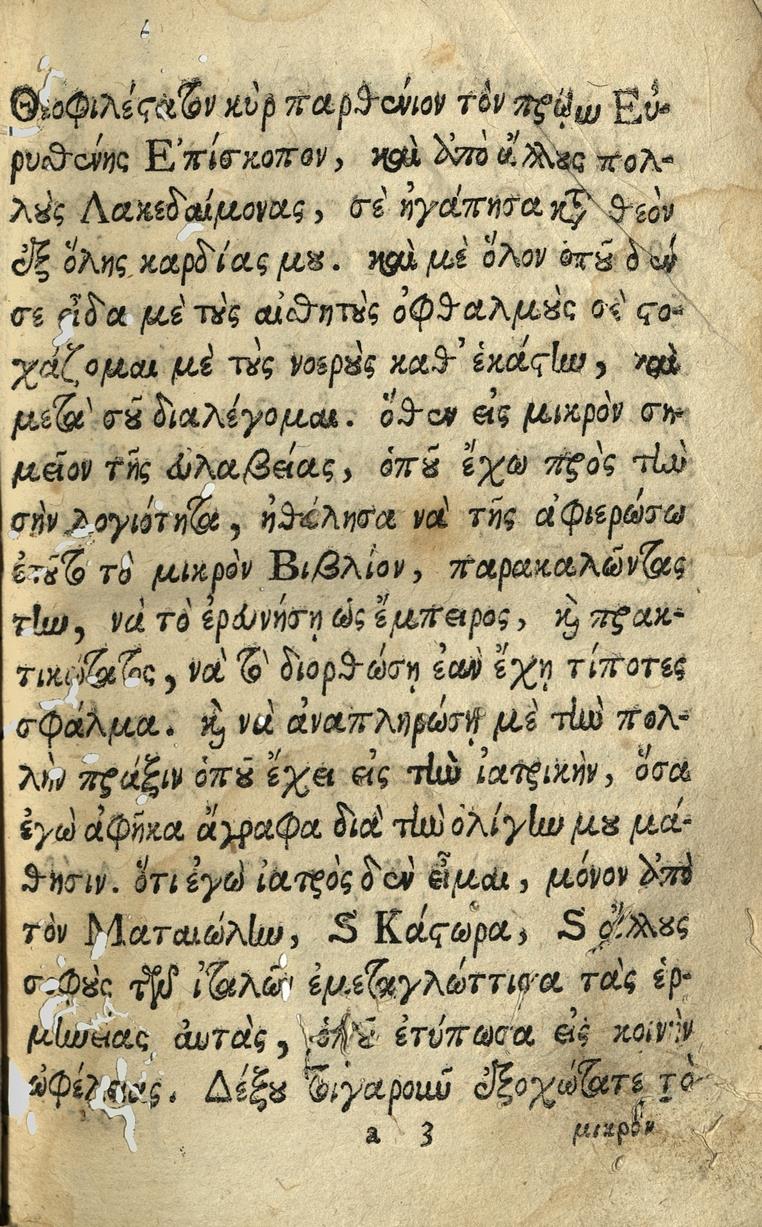 Θεοφιλέστατον κὺρ παρθένιον τὸν πρῴω Εὐ-
ρυθένης Ἐπίσκοπον, καὶ ἀπὸ ἄλλους πολ-
λοὺς Λακεδαίμονας, σὲ ἠγάπησα κτ̀ θεὸν
ἐξ ὅλης καρδίας μου. καὶ μὲ ὅλον ὁποῦ δέν
σε εἶδα μὲ τοὺς αἰσθητοὺς ὀφθαλμοὺς σὲ στο-
χάζομαι μὲ τοὺς νοεροὺς καθ' ἑκάστην, καὶ
μετὰ σοῦ διαλέγομαι. ὅθεν εἰς μικρὸν ση-
μεῖον τῆς εὐλαβείας, ὁποῦ ἔχω πρὸς τὴν
σὴν λογιότητα, ἠθέλησα νὰ τῆς ἀφιερώσω
ἐτοῦτο τὸ μικρὸν Βιβλίον, παρακαλῶντας
την, νὰ τὸ ἐρευνήσῃ ὡς ἔμπειρος, καὶ πρακ-
τικώτατος, νὰ τὸ διορθώσῃ ἐὰν ἔχῃ τίποτες
σφάλμα. καὶ νὰ ἀναπληρώσῃ μὲ τὴν πολ-
λὴν πράξιν ὁποῦ ἔχει εἰς τὴν ἰατρικὴν, ὅσα
ἐγὼ ἀφῆκα ἄγραφα διὰ τὴν ὀλίγην μου μά-
θησιν. ὅτι ἐγὼ ἰατρὸς δὲν εἶμαι, μόνον ἀπὸ
τὸν Ματαιώλην, S Κάστωρα, S ἄλλους
σοφοὺς τῶν ἰταλῶν ἐμεταγλώττισα τὰς ἑρ-
μηνείας αὐτὰς, ὁποῦ ἐτύπωσα εἰς κοινὴν
ὠφέλειας. Δέξου τοιγαροῦν ἐξοχώτατε τὸ
a 3 μικρὸν